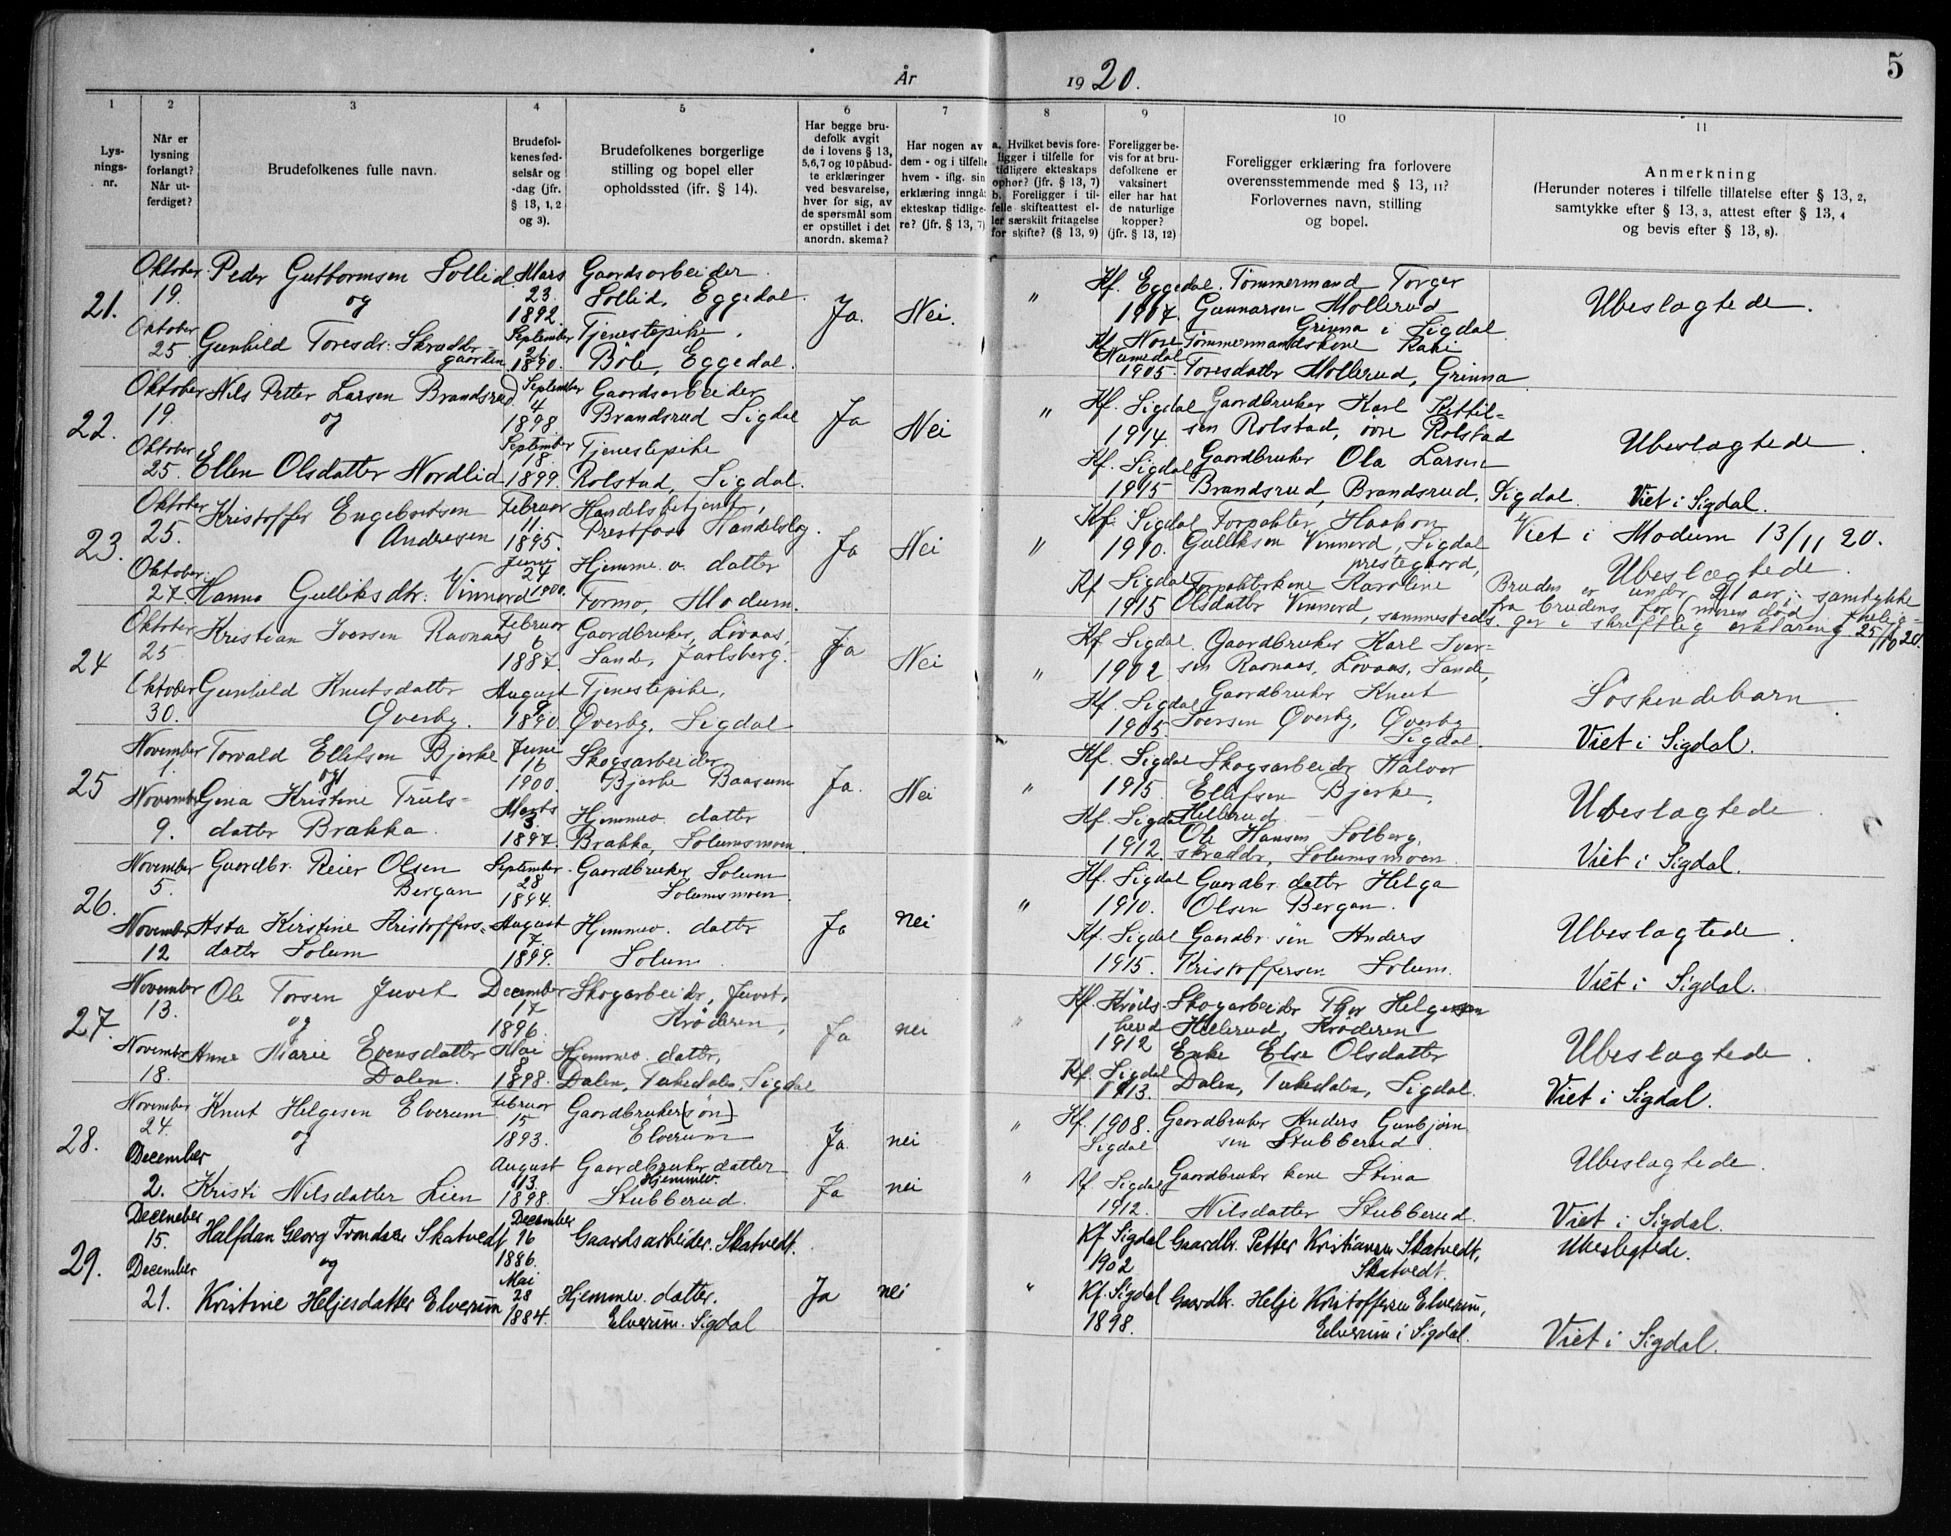 År 1920. 5
1 2 3 4 5 6 7 8 9 10 11
Lys-
nings-
nr.
Når er
lysning
forlangt?
Når ut-
ferdiget?
Brudefolkenes fulle navn.
Brudefol-
kenes fød-
selsår og
-dag (jfr.
§ 13, 1, 2
og 3).
Brudefolkenes borgerlige
stilling og bopel eller
opholdssted (jfr. § 14).
Har begge bru-
defolk avgit
de i lovens § 13,
5,6,7 og 10 påbud-
te erklæringer
ved besvarelse,
hver for sig, av
de spørsmål som
er opstillet i det
anordn. skema?
Har nogen av
dem - og i tilfelle
hvem - iflg. sin
erklæring inngåt
ekteskap tidlige-
re? (jfr. § 13, 7)
a. Hvilket bevis fore-
ligger i tilfelle for
tidligere ekteskaps
ophør? (jfr. § 13, 7)
b. Foreligger i til-
felle skifteattest el-
ler særskilt fritagelse
for skifte? (§ 13, 9)
Foreligger be-
vis for at bru-
defolkene er
vaksinert
eller har hat
de naturlige
kopper?
(jfr. § 13, 12)
Foreligger erklæring fra forlovere
overensstemmende med § 13, 11?
Forlovernes navn, stilling
og bopel.
Anmerkning
(Herunder noteres i tilfelle tillatelse efter § 13, 2,
samtykke efter § 13, 3, attest efter § 13, 4
og bevis efter § 13, 8).
21.
Oktober
19.
Oktober
25
Peder Guttormsen Sollid
og
Gunhild Toresdr. Skradder-
gaarden
Mars
23.
1892.
September
26
1890.
Gaardsarbeider
Sollid, Eggedal.
Tjenestepike,
Böle, Eggedal.
Ja. Nei. "
Kf. Eggedal
1907.
Kf. Nore
Numedal
1905.
Tømmermand Torger
Gunnarsen Mollerud
Grinna i Sigdal
Tømmermandskone Kari
Toresdatter Mollerud, Grinna
Ubeslagtede.
22.
Oktober
19.
Oktober
25.
Nils Petter Larsen Brandsrud
og
Ellen Olsdatter Nordlid
September
4
1898
September
18
1899.
Gaardsarbeider
Brandsrud Sigdal
Tjenestepike
Rolstad, Sigdal.
Ja Nei "
Kf. Sigdal
1914.
Kf. Sigdal
1915
Gaardbruker Karl Kittil=
sen Rolstad, övre Rolstad
Gaardbruker Ola Larsen
Brandsrud, Brandsrud, Sigdal.
Ubeslagtede.
Viet i Sigdal.
23.
Oktober
25.
Oktober
27.
Kristoffer Engebretsen
Andresen
Hanna Gulliksdtr. Vinnord
Februar
11.
1895.
Juni
24
1900.
Handelsbetjent,
Prestfoss Handelslag.
Hjemme v. datter
Formo, Modum.
Ja Nei "
Kf. Sigdal
1910.
Kf Sigdal
1915
Forpakter Haakon
Gulliksen Vinnord, Sigdal
prestegaard,
Forpakterkone Karoline
Olsdatter Vinnord
, sammesteds.
Viet i Modum 13/11 20.
Ubeslægtede.
Bruden er under 21 aar; samtykke
fra brudens far (moren död) forelig=
ger i skriftlig erklæring 25/10 20.
24
Oktober
25
Oktober
30.
Kristian Iversen Ravnaas
Gunhild Knutsdatter
Qverby.
Februar
6
1887
August
9
1890.
Gaardbruker, Lövaas,
Sande, Jarlsberg.
Tjenestepike,
Qverby, Sigdal
Ja Nei "
Kf. Sigdal
1902
Kf. Sigdal
1905
Gaardbruker Karl Iver=
sen Ravnaas, Lövaas, Sande,
Gaardbruker Knut
Iversen Qverby, Qverby
Sigdal.
Söskendebarn.
Viet i Sigdal.
25
November
1.
November
9.
Torvald Ellefsen Bjerke
og
Gina Kristine Truls=
datter Brakka.
Juni
16
1900.
Marts
3.
1897.
Skogsarbeider
Bjerke Baasum
Hjemmev. datter
Brakka, Solumsmoen.
Ja. Nei "
Kf. Sigdal
1915.
Kf. Sigdal
1912.
Skogsarbeider Halvor
Ellefsen Bjerke,
Hellerud.
Ole Hansen Solberg,
skrædder, Solumsmoen.
Ubeslagtede.
Viet i Sigdal.
26.
November
5.
November
12
Gaardbr. Reier Olsen
Bergan
Asta Kirstine Kristoffers=
datter Solum
September
28
1894.
August
7.
1899.
Gaardbruker Solum
Solumsmoen.
Hjemmev. datter
Solum
Ja nei "
Kf. Sigdal
1910.
Kf. Sigdal
1915.
Gaardbr. datter Helga
Olsen Bergan.
Gaardbr. sön Anders
Kristoffersen Solum.
Ubeslagtede.
Viet i Sigdal.
27.
November
13.
November
18.
Ole Torsen Juvet
og
Anne Marie Evensdatter
Dalen.
December
17
1896.
Mai
8
1898.
Skogarbeidr, Juvet,
Kröderen,
Hjemmev. datter,
Dalen, Tukedalen, Sigdal
Ja nei "
Kf. Kröds-
herred
1912
Kf. Sigdal
1913.
Skogarbeider Thor Helgesen
Hillerud, Kröderen
Enke Else Olsdatter
Dalen, Tukedalen, Sigdal.
Ubeslagtede.
Viet i Sigdal.
28.
November
24.
December
2.
Knut Helgesen Elverum
og
Kristi Nilsdatter Lien
Februar
15
1893.
August
13.
1898.
Gaardbruker(sön)
Elverum
Gaardbruker datter
Hjemmev.
Stubberud.
Ja nei "
Ja nei "
Kf. 1908.
Sigdal
Kf. Sigdal
1912.
Gaardbruker Anders Gunbjørn
sen Stubberud
Gaardbruker kone Stina
Nilsdatter Stubberud.
Ubeslagtede.
Viet i Sigdal.
29.
December
15.
December
21.
Halfdan Georg Trondsen Skatvedt
og
Kristine Heljesdatter Elverum
December
16
1886.
Mai
28
1884.
Gaardsarbeider. Skatvedt.
Hjemmev. datter.
Elverum. Sigdal
Ja nei "
Kf Sigdal
1902
Kf. Sigdal
1898.
Gaardbr. Petter Kristiansen Skatvedt,
Skatvedt.
Gaardbr. Helje Kristoffersen Elverum,
Elverum i Sigdal.
Ubeslegtede.
Viet i Sigdal.